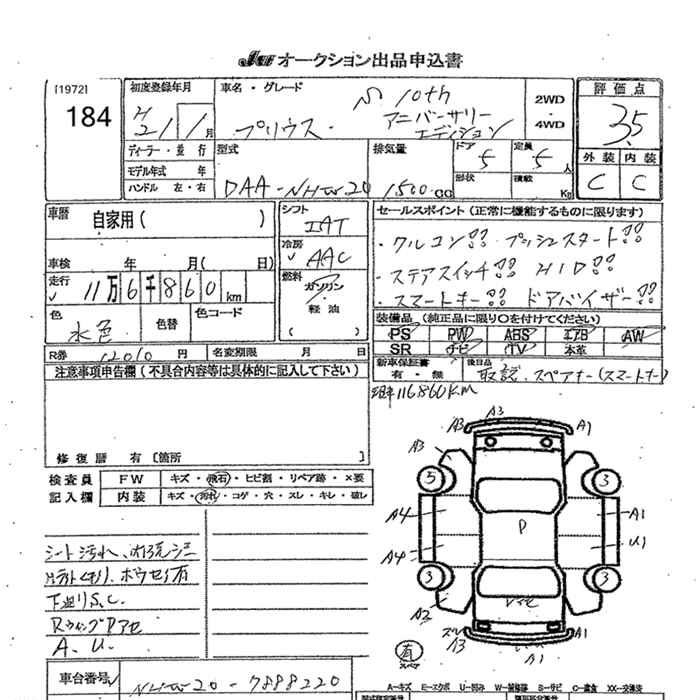 JU オークション出品申込書
[1972]
184
初度登録年月
H 21/1月
車名・グレード
プリウス S 10th アニバーサリー エディション
2WD・4WD
評価点
3.5
ディーラー・並行
モデル年式 年
ハンドル 左・右
型式
DAA-NHW20
排気量
1500 CC
ドア 5
定員 5 人
形状
積載 Kg
外装 内装
C C
車歴 自家用( )
シフト IAT
冷房 AAC
車検 年 月( 日)
走行 11万6千860km
燃料 ガソリン 軽油 ( )
色 水色
色替
色コード
R券 12010円
名変期限 月 日
セールスポイント(正常に機能するものに限ります)
・クルコン!! プッシュスタート!!
・ステアスイッチ!! HID!!
・スマートキー!! ドアバイザー!!
装備品(純正品に限り○を付けてください)
PS PW ABS エアB AW
SR ナビ TV 本革
新車保証書 有・無
後日品 取説、スペアキー(スマートキー)
注意事項申告欄(不具合内容等は具体的に記入して下さい)
116860KM
修復歴 有〔箇所 〕
検査員記入欄
FW キズ・飛石・ヒビ割・リペア跡・×要
内装 キズ・汚れ・コゲ・穴・スレ・キレ・破レ
シート汚れ、
下廻りS.C.
A.U.
A3 A3 A1
5 3
A4 A1
P
A4 U1
3 3
A2
A3 A1 A1
有
車台番号 NHW20-7888220
A=キズ E=エクボ U=凹み W=補修跡 S=サビ C=腐食 X=要交換 XX=交換済